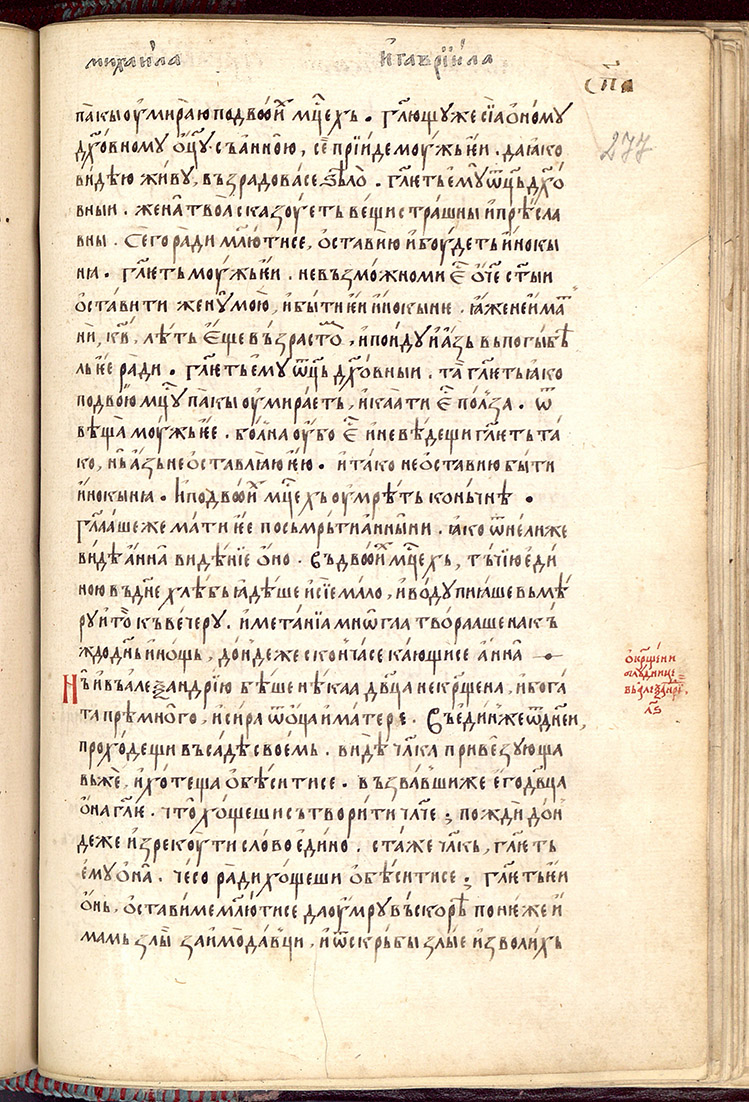 михаи́ла и҆гаврїи́ла
спа
277
па́кы оу҆мира́ю подвою҆ мⷭ҇цехъ · гл҃ющꙋ же сїа ѻ҆номꙋ
дх҃о́вномꙋ ѻ҆ц҃ꙋ съ а҆нною, се прїи́де мѹжь є҆и · да ꙗ҆ко
ви́дѣ ю҆ живꙋ, въз̾радова се ѕѣло̀ · гл҃еть є҆мꙋ ѿц҃ь дх҃о́
вныи · жена̀ твоа̀ сказѹ́еть ве́щи стра́шны и҆ прѣ́сла
вны · Сего̀ ра́ди мл҃ю ти се, ѻ҆стави ю҆ и҆ бѹ́деть и҆нокы
ни · гл҃еть мѹ́жь є҆и · невъз̾можно ми є҆ⷭ ѻ҆ч҃е ст҃ыи
ѻ҆ста́вити женꙋ̀ мою̀, и҆ бы́ти є҆и и҆нокыню · ꙗ҆ же не и҆мать
ни, к҃в, лѣть є҆ще въ́зрастоⷨ, и҆ по́идꙋ и҆ а҆зь вь погы́бѣ
ль є҆е ра́ди · гл҃еть є҆мꙋ ѿц҃ь дх҃о́вныи · та̀ гл҃еть ꙗ҆ко
подвою̀ мⷭ҇цꙋ па́кы оу҆мираеть, и҆ каа ти є҆ⷭ по́лза · ѿ
вѣща̀ мѹ́жь є҆е · бо́лна оу҆бо є҆ⷭ и҆ не вѣ́дещи гл҃еть та
ко, нь а҆зь не ѻ҆ставлꙗ́ю є҆ю · и҆ та́ко не ѻ҆стави ю҆ бы́ти
и҆нокыни · И҆ подвою҆ мⷭ҇цехъ оу҆мрѣ́ть коньчнѣ ·
гл҃аше же ма́ти є҆е по сьмрьти а҆ннины · ꙗ҆ко ѿнели́же
ви́дѣ а҆нна видѣ́нїе ѻ҆но · Въ двою҆ мⷭ҇цехъ, тъ́чїю є҆ди
ною въ дн҃е хлѣ́бь ꙗ҆дѣ́ше и҆ сїе ма́ло, и҆ во́дꙋ пиꙗ́ше вь мѣ́
рꙋ и҆ то̀ къ ве́черꙋ · и҆ метанїа мнѡга твораа́ше на къ
ждо дн҃ь и҆ но́щь, до́и҆деже сконча́ се каю́щи се а҆нна
Нѣ́ъ и҆ въ а҆леѯандрїю бѣ́ше нѣ́каа дв҃ца некрщ҃ена, и҆ бога
та прѣмно́го, и҆ си́ра ѿ ѻ҆ца и҆ ма́тере · Въ є҆ди́нь же ѿ дн҃еи,
прохо́дещи въ са́дѣ свое́мь · ви́дѣ чл҃ка приве́зꙋюща
вь́же, и҆ хоте́ща ѻ҆бѣ́сити се · въз̾ва́вши же є҆го дв҃ца
ѻ҆на гл҃е · что̀ хо́щеши сътвори́ти чл҃че ; пождѝ до́и
деже и҆зрекѹ́ ти сло́во є҆ди́но · ста́ же чл҃кь, гл҃еть
є҆мꙋ ѻ҆на̀ · чесо̀ ра́ди хо́щеши ѻ҆бѣ́сити се ; гл҃еть є҆и
ѻ҆нь, ѻ҆ста́ви ме мл҃ю ти се да оу҆мрꙋ въ́скорѣ поне́же и
мамь злы́ заимода́вци, и҆ ѿ скрь́бы злы́е и҆зво́лихъ
ѻ҆ крщ҃ени
блꙋ́днице
вь а҆леѯандрї,
л҃ѕ